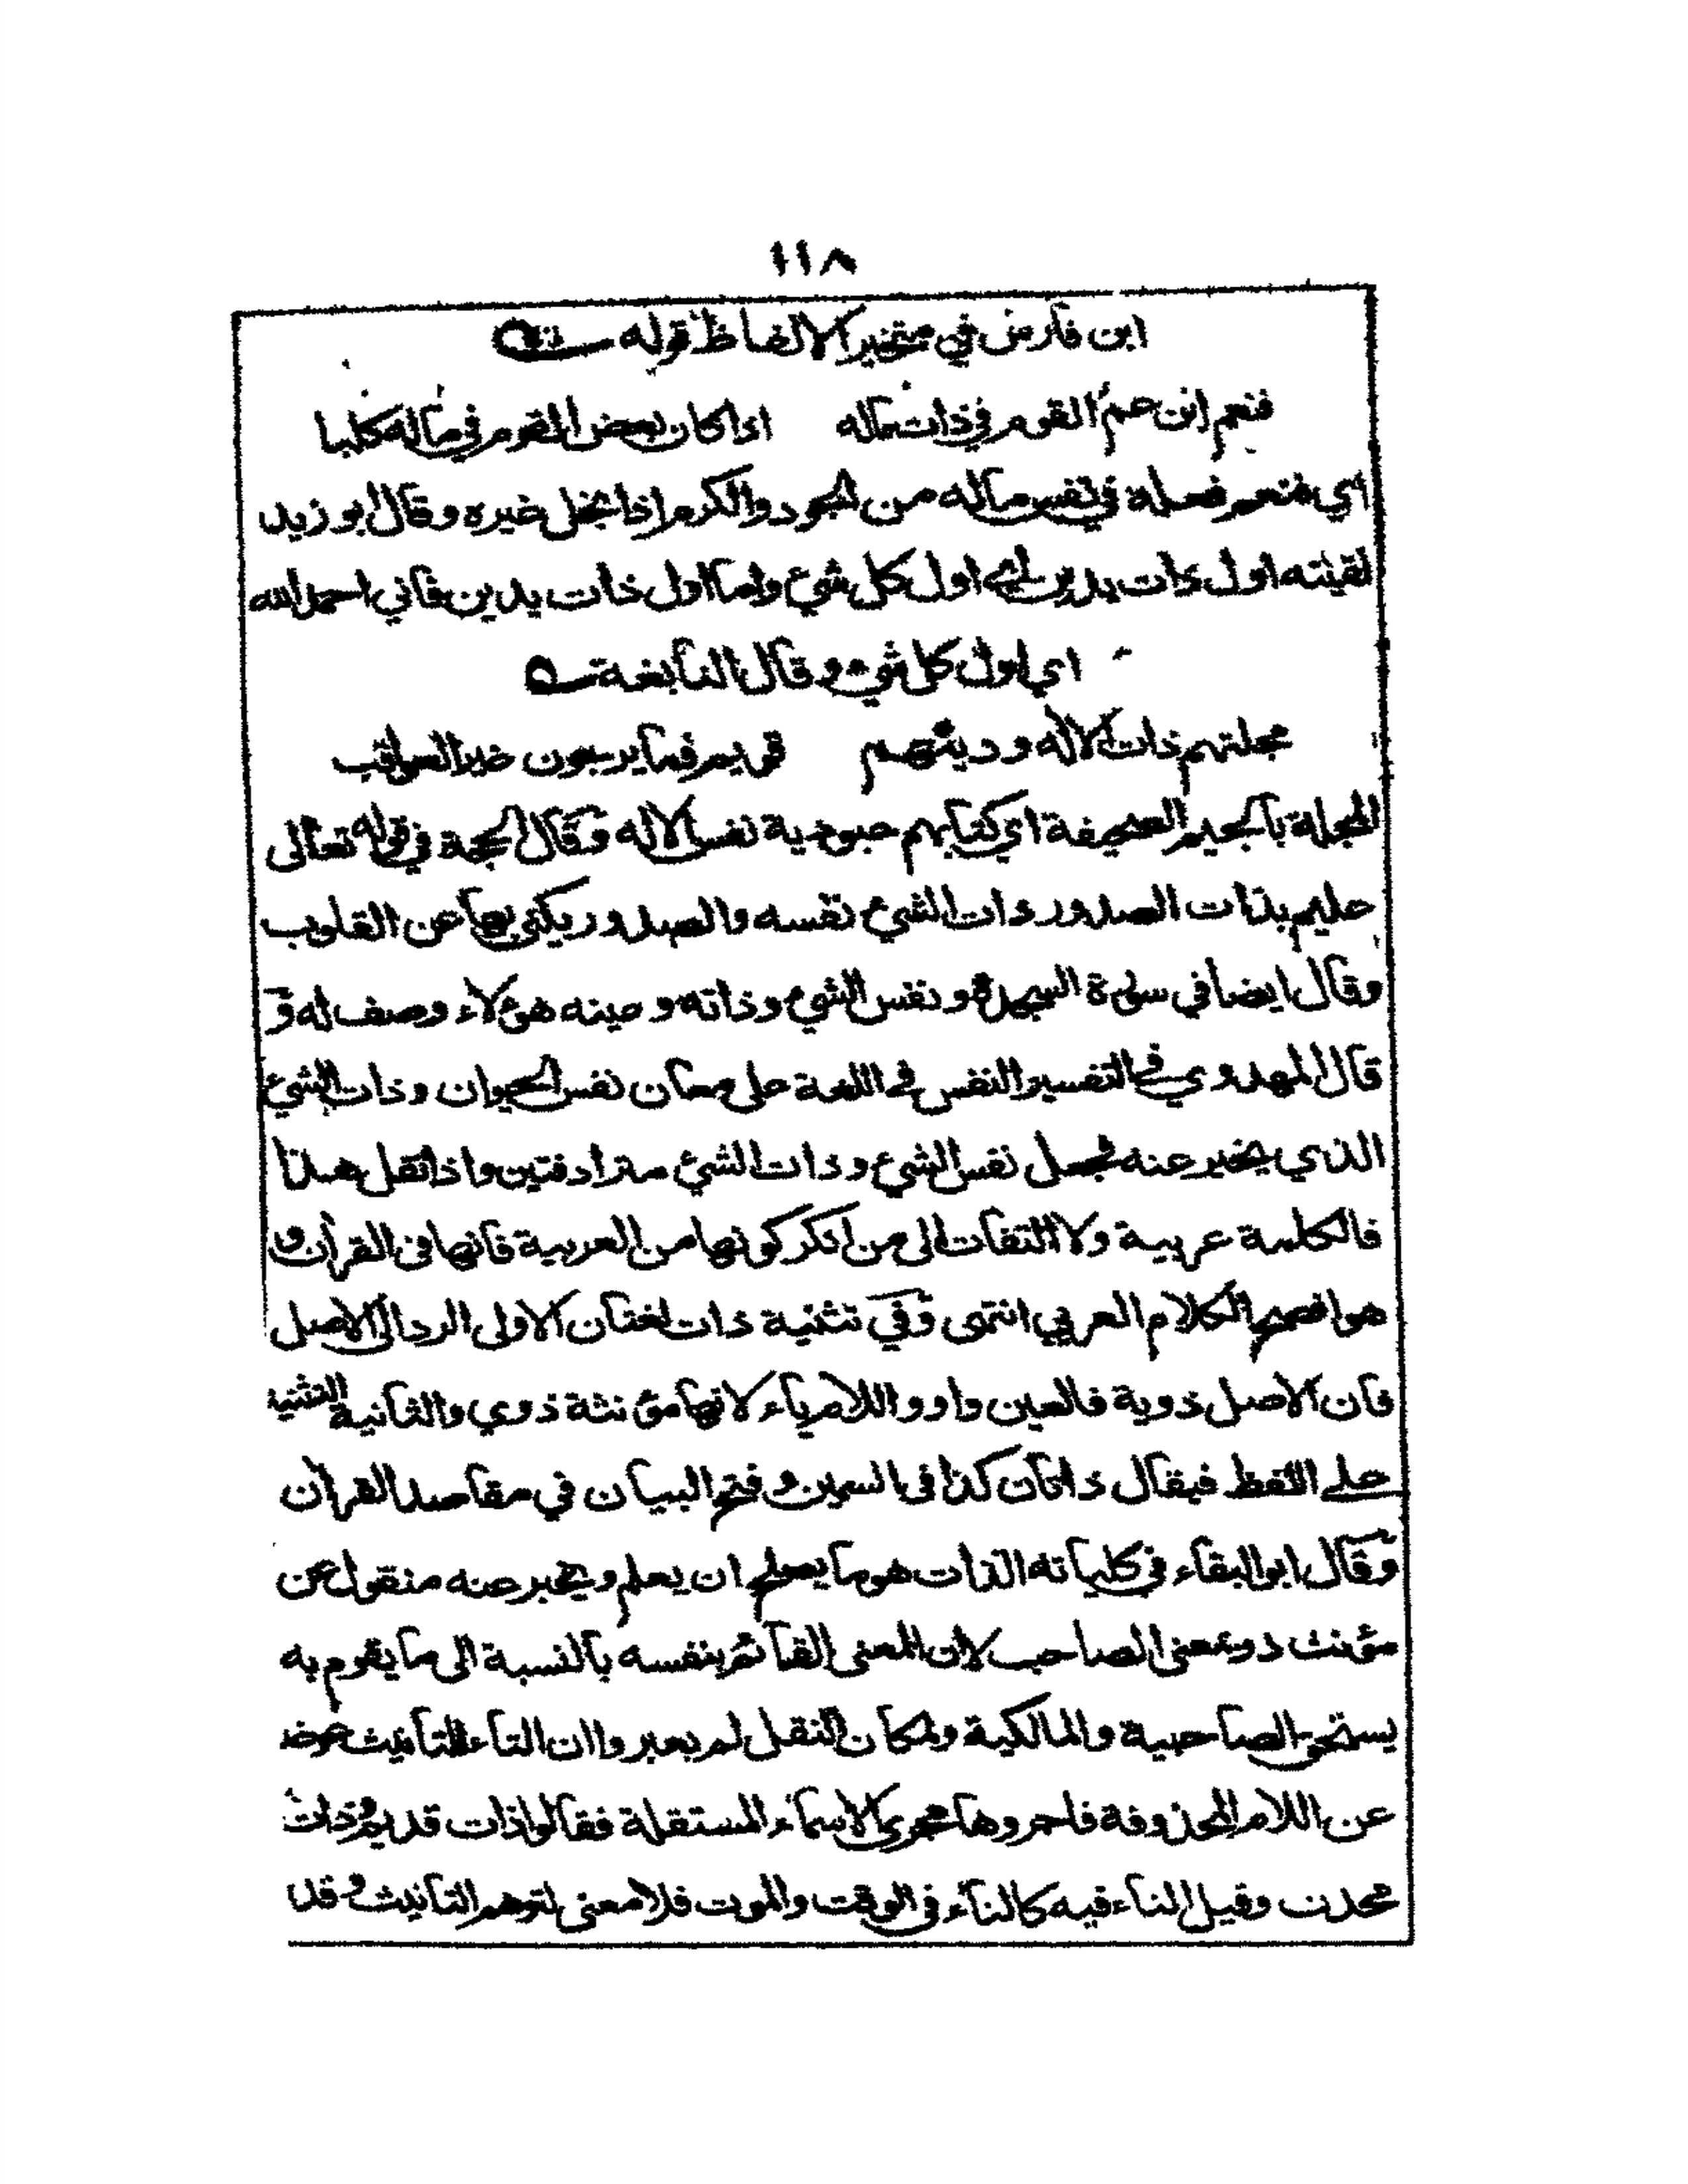 ١١٨
ابن فارس في متخير الالفاظ قوله
فنعم ابن عم القوم في ذات ماله اذا كان بعض القوم في ماله كلبا
اي فنعم فعله في نفس ماله من الجود والكرم اذا بخل غيره وقال ابو زيد
لقيته اول ذات يدين اي اول كل شيء واما اول ذات يدين فاني احمد الله
اي اول كل شيء وقال النابغة
مجلتهم ذات الاله ودينهم قويم فما يرجون غير العواقب
المجلة بالجيم الصحيفة اي كتابهم عبودية نفس الاله وقال الحجة في قوله تعالى
عليم بذات الصدور ذات الشيء نفسه والصدور يكنى بها عن القلوب
وقال ايضا في سورة السجدة ونفس الشيء وذاته وعينه هؤلاء وصف له و
قال المهدوي في التفسير النفس في اللغة على معان نفس الحيوان وذات الشيء
الذي يخبر عنه فجعل نفس الشيء وذات الشيء مترادفتين واذا نقل هذا
فالكلمة عربية ولا التفات الى من انكر كونها من العربية فانها في القرآن و
هو افصح الكلام العربي انتهى وفي تثنية ذات لغتان الاولى الرد الى الاصل
فان الاصل ذوية فالعين واو واللام ياء لانها مؤنثة ذوي والثانية التثنية
على اللفظ فيقال ذاتان كذا في السمين وفتح البيان في مقاصد القرآن
وقال ابو البقاء في كلياته الذات هو ما يصلح ان يعلم ويخبر عنه منقول عن
مؤنث ذو بمعنى الصاحب لان المعنى القائم بنفسه بالنسبة الى ما يقوم به
يستحق الصاحبية والمالكية ولمكان النقل لم يعبروا ان التاء للتأنيث عوضا
عن اللام المحذوفة فاجروها مجرى الاسماء المستقلة فقالوا ذات قديم وذات
محدث وقيل التاء فيه كالتاء في الوقت والموت فلا معنى لتوهم التانيث وقد